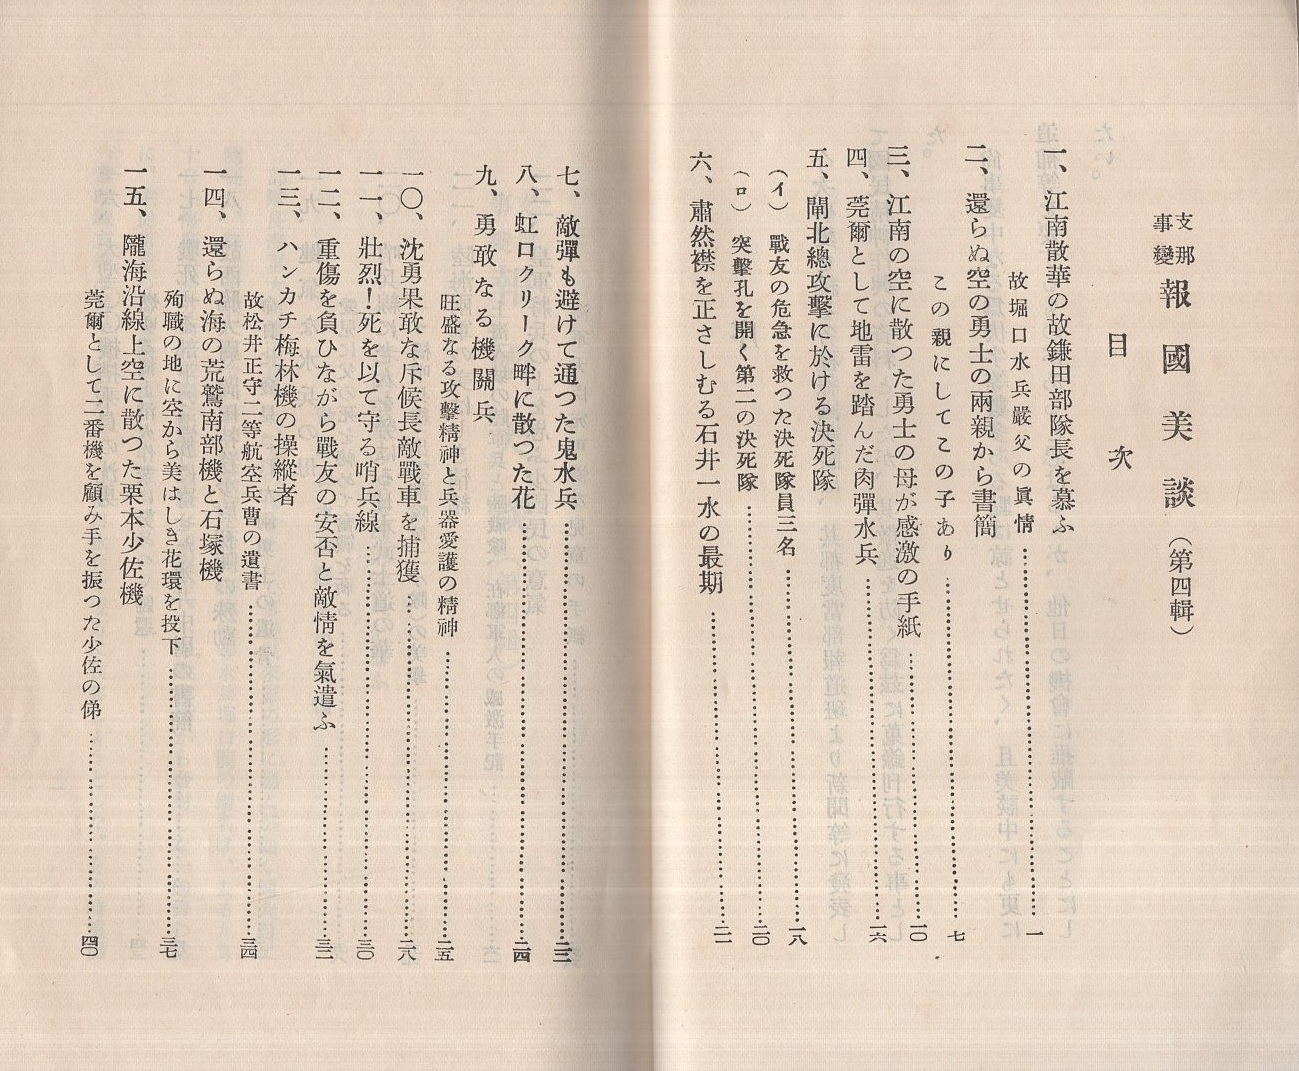 支那事變 報國美談（第四輯）
目次
一、江南散華の故鎌田部隊長を慕ふ
故堀口水兵嚴父の眞情……一
二、還らぬ空の勇士の兩親から書簡
この親にしてこの子あり……七
三、江南の空に散つた勇士の母が感激の手紙……一〇
四、莞爾として地雷を踏んだ肉彈水兵……一六
五、閘北總攻擊に於ける決死隊
（イ）戰友の危急を救つた決死隊員三名……一八
（ロ）突擊孔を開く第二の決死隊……二〇
六、肅然襟を正さしむる石井一水の最期……二一
七、敵彈も避けて通つた鬼水兵……二三
八、虹口クリーク畔に散つた花……二四
九、勇敢なる機關兵
旺盛なる攻擊精神と兵器愛護の精神……二五
一〇、沈勇果敢な斥候長敵戰車を捕獲……二八
一一、壯烈！死を以て守る哨兵線……三〇
一二、重傷を負ひながら戰友の安否と敵情を氣遣ふ……三三
一三、ハンカチ梅林機の操縱者
故松井正守二等航空兵曹の遺書……三四
一四、還らぬ海の荒鷲南部機と石塚機
殉職の地に空から美はしき花環を投下……三七
一五、隴海沿線上空に散つた栗本少佐機
莞爾として二番機を顧み手を振つた少佐の俤……四〇